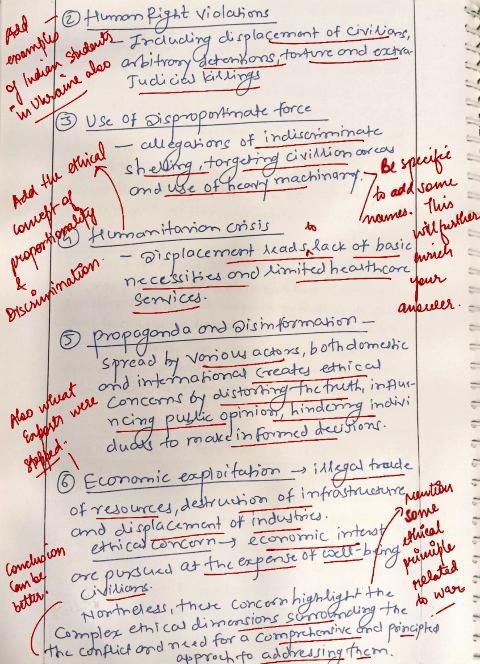 ② Human Right Violations
— Including displacement of civilians,
arbitrary detentions, torture and extra-
Judicial killings
Add
examples
of Indian Students
in Ukraine also
③ Use of Disproportinate force
— allegations of indiscriminate
shelling, targeting civillion areas
and use of heavy machinary.
Add the ethical
concept of
proportionality
&
Discrimination.
Be specific
to add some
names. This
will further
enrich
your
answer.
④ Humanitarian crisis
— Displacement leads to lack of basic
necessities and limited healthcare
Services.
⑤ propaganda and Disinformation —
spread by various actors, both domestic
and international creates ethical
concerns by distorting the truth, influ-
ncing public opinion, hindering indivi
duals to make informed decisions.
Also what
Exports were
stopped.
⑥ Economic exploitation → illegal trade
of resources, destruction of infrastructure
and displacement of industries.
ethical concern → economic interest
are pursued at the expense of well-being
civilians.
mention
some
ethical
principle
related
to war
Conclusion
can be
better.
Nontheless, these concern highlight the
complex ethical dimensions surrounding the
the conflict and need for a comprehensive and principled
approch to addressing them.